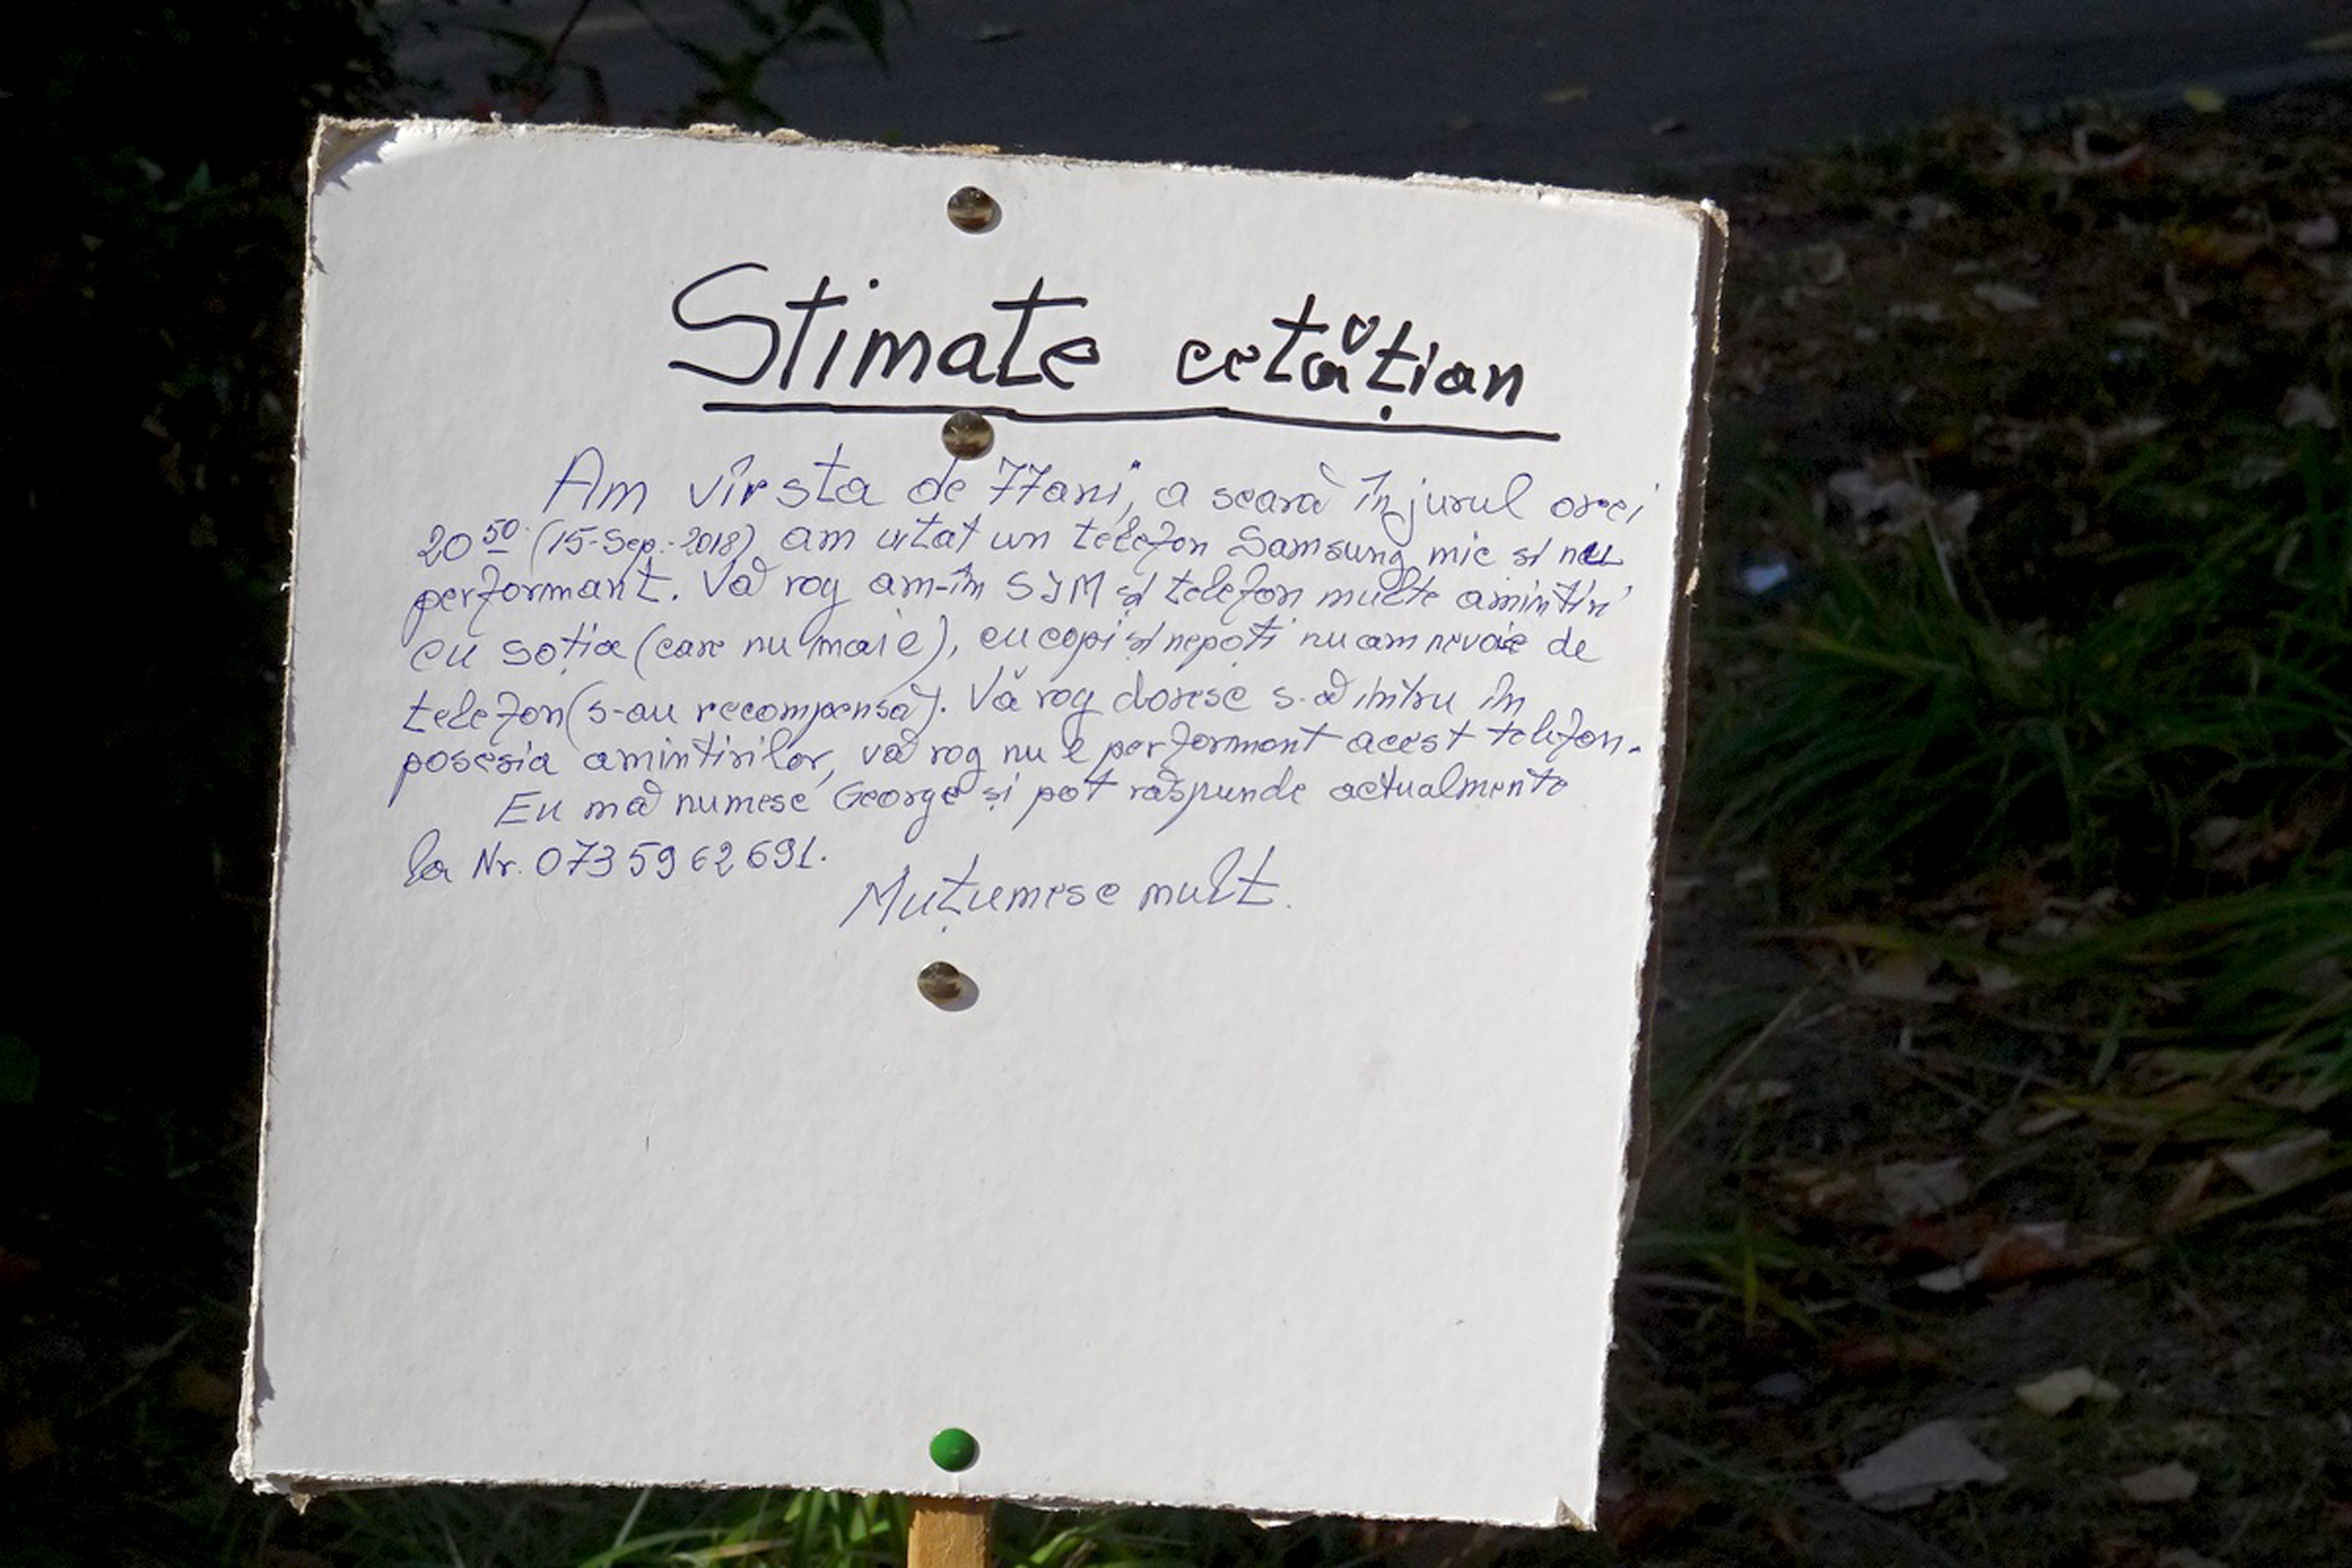 Stimate cetățian
Am vîrsta de 77ani, a seară în jurul orei
20 50 (15-Sep.-2018) am uitat un telefon Samsung mic si nu
performant. Vă rog am-în SIM și telefon multe amintiri
cu soția (care nu mai e), cu copi și nepoți nu am nevoie de
telefon (s-au recompensă). Vă rog doresc s-ă intru în
posesia amintirilor, vă rog nu e performant acest telefon.
Eu mă numesc George și pot răspunde actualmente
la Nr. 0735962691.
Muțumesc mult.